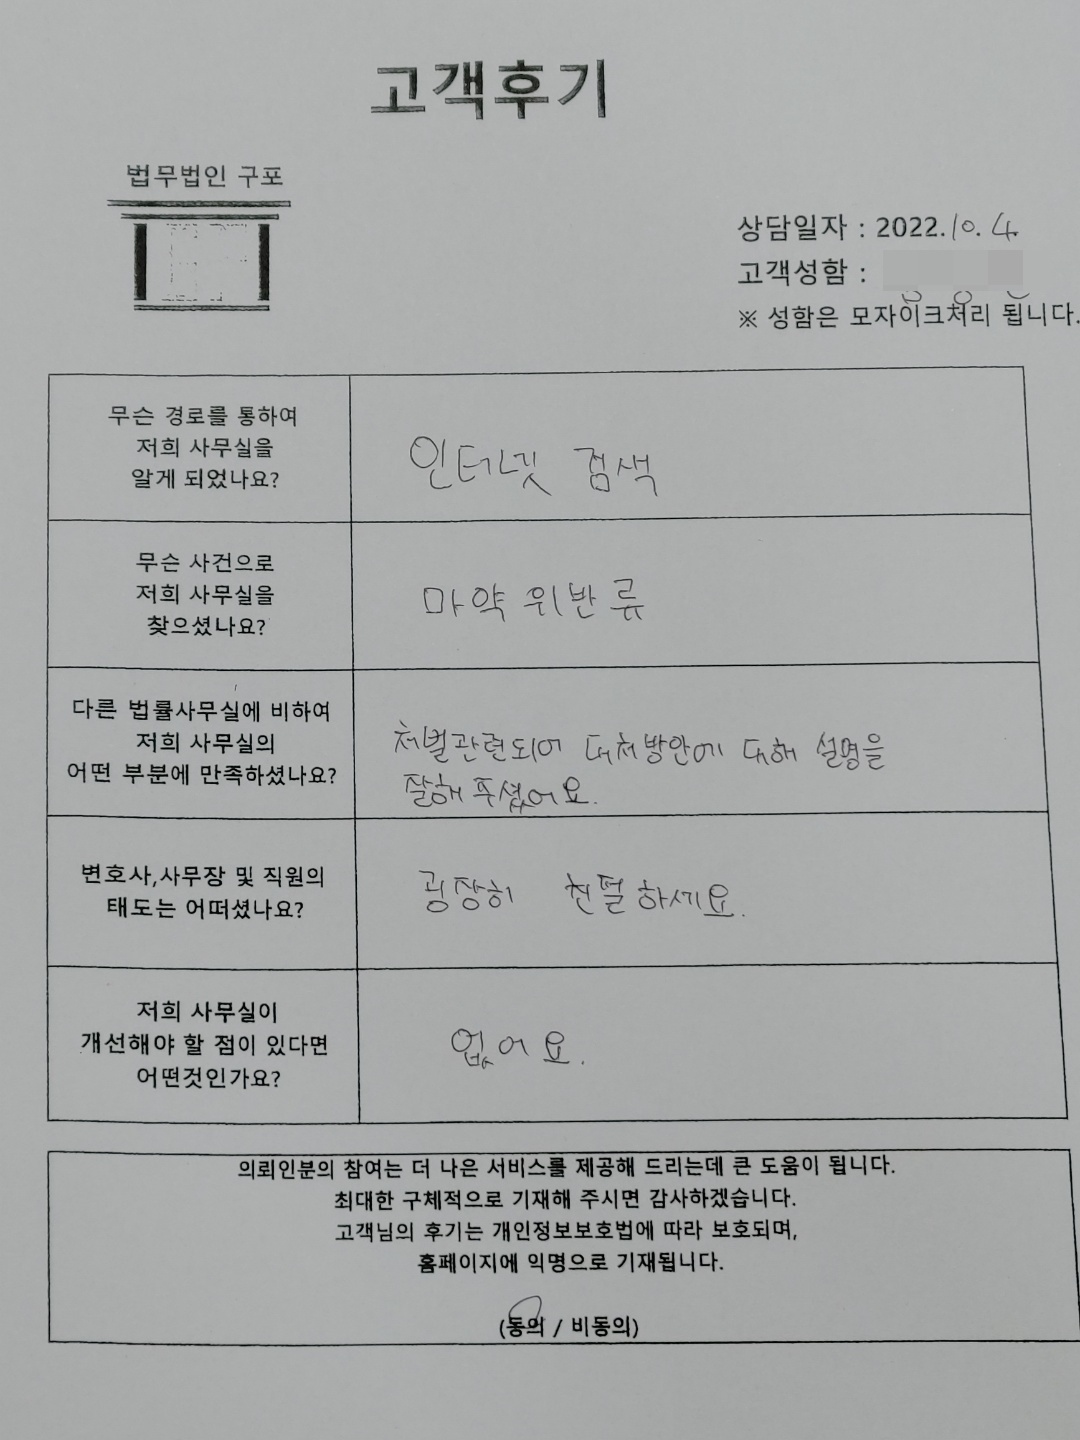 고객후기
법무법인 구포
상담일자 : 2022.10.4.
고객성함 :
※ 성함은 모자이크처리 됩니다.
무슨 경로를 통하여
저희 사무실을
알게 되었나요?
인터넷 검색
무슨 사건으로
저희 사무실을
찾으셨나요?
마약 위반류
다른 법률사무실에 비하여
저희 사무실의
어떤 부분에 만족하셨나요?
처벌관련되어 대처방안에 대해 설명을
잘해 주셨어요.
변호사,사무장 및 직원의
태도는 어떠셨나요?
굉장히 친절하세요.
저희 사무실이
개선해야 할 점이 있다면
어떤것인가요?
없어요.
의뢰인분의 참여는 더 나은 서비스를 제공해 드리는데 큰 도움이 됩니다.
최대한 구체적으로 기재해 주시면 감사하겠습니다.
고객님의 후기는 개인정보보호법에 따라 보호되며,
홈페이지에 익명으로 기재됩니다.
(동의 / 비동의)